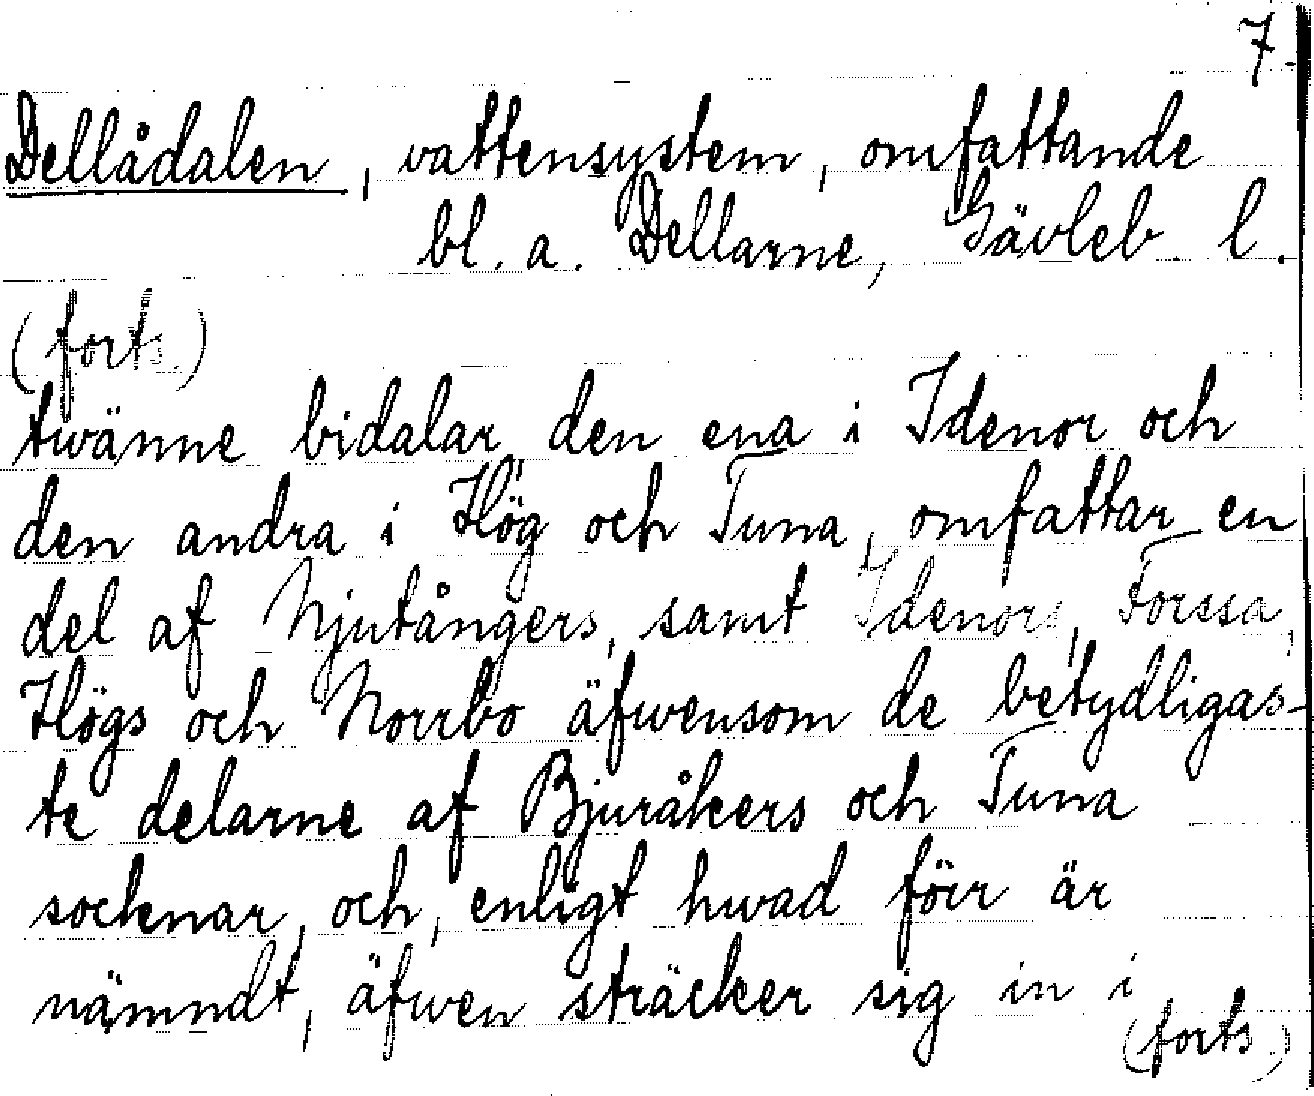 7.
Dellådalen, vattensystem, omfattande
bl. a. Dellarne, Gävleb. l.
(forts.)
twänne bidalar, den ena i Idenor och
den andra i Hög och Tuna, omfattar en
del af Njutångers, samt Idenors, Forssa,
Högs och Norrbo äfwensom de betydligas-
te delarne af Bjuråkers och Tuna
socknar, och, enligt hwad förr är
nämndt, äfwen sträcker sig in i
(forts.)